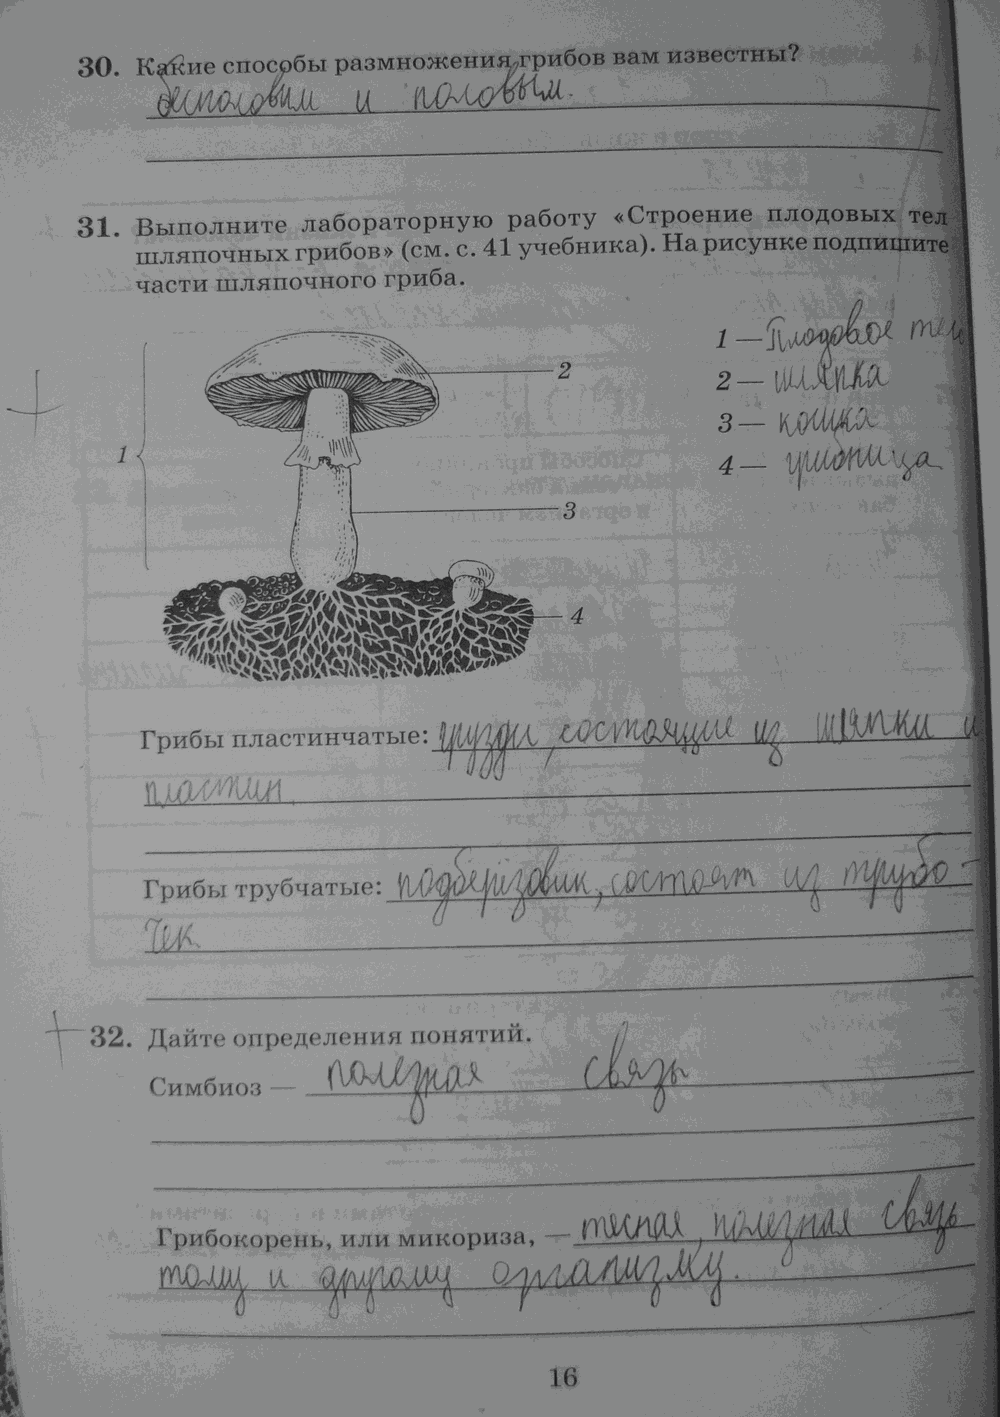 30. Какие способы размножения грибов вам известны?
бесполовым и половым.
31. Выполните лабораторную работу «Строение плодовых тел
шляпочных грибов» (см. с. 41 учебника). На рисунке подпишите
части шляпочного гриба.
1 — Плодовое тело
2 — шляпка
3 — ножка
4 — грибница
1
2
3
4
Грибы пластинчатые: грузди, состоящие из шляпки и
пластин.
Грибы трубчатые: подберёзовик, состоят из трубо-
чек
32. Дайте определения понятий.
Симбиоз — полезная связь
Грибокорень, или микориза, — тесная, полезная связь
тому и другому организму.
16